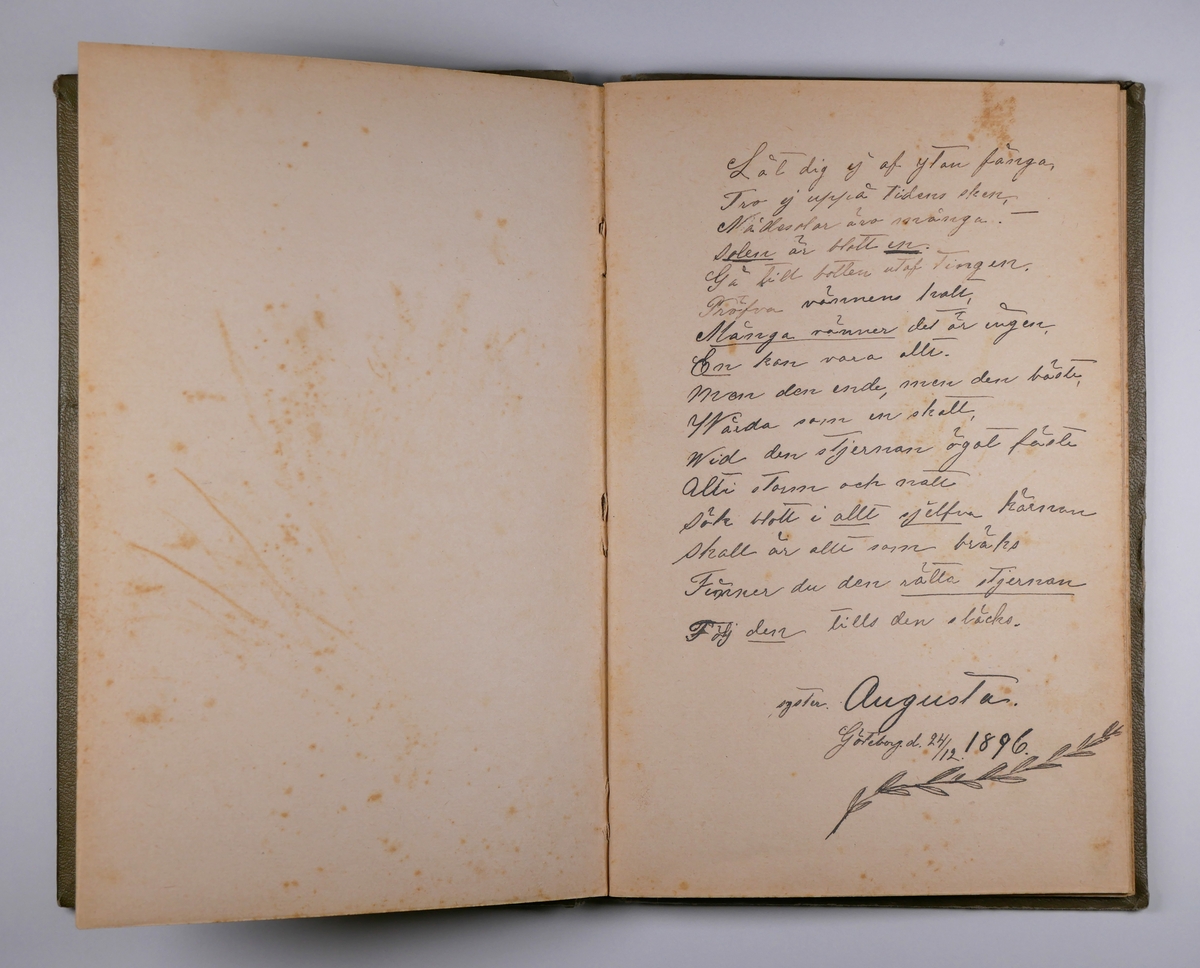 Låt dig ej af ytan fånga,
Tro ej uppå tidens sken,
Vädersolar äro många. –
solen är blott en.
Gå till botten utaf tingen.
Pröfva vännens halt,
Många vänner det är ingen,
En kan vara allt.
Men den ende, men den bäste,
Wårda som en skatt,
Wid den stjernan ögat fäste
Alti storm och natt
Sök blott i allt sjelfva kärnan
Skall är allt som bräks
Finner du den rätta stjernan
Följ den tills den släcks.
syster. Augusta.
Göteborg d. 24/12. 1896.